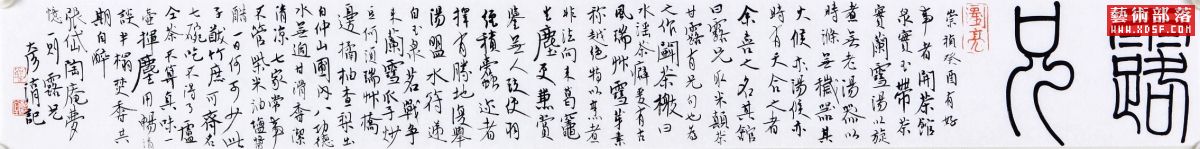 露兄
崇禎癸酉有好
事者開茶館
泉實玉帶茶
實蘭雪湯以旋
煮無老湯器以
時滌無穢器其
火候亦湯候亦
時有天合之者
余喜之名其館
曰露兄取米顛茶
甘露有兄句也為
之作鬭茶檄曰
水淫茶癖爰有古
風瑞艸雪芽素
稱越絕特以烹煮
非法向來葛竈
生塵更兼賞
鑒無人致使羽
經積蠹邇者
擇有勝地復舉
湯盟水符遞
自玉泉茗戰爭
來蘭雪瓜子炒
豆何須瑞艸橋
邊橘柚查梨出
自仲山圃內八功德
水無過甘滑香潔
清涼七家常事
不管柴米油鹽醬
醋一日何可少此
子猷竹庶可齊名
七碗吃不得了盧
仝茶不算真味一
壺揮麈用暢清
談半榻焚香共
期白醉
張岱陶庵夢
憶一則露兄
記
藝術部落
WWW.XDSF.COM